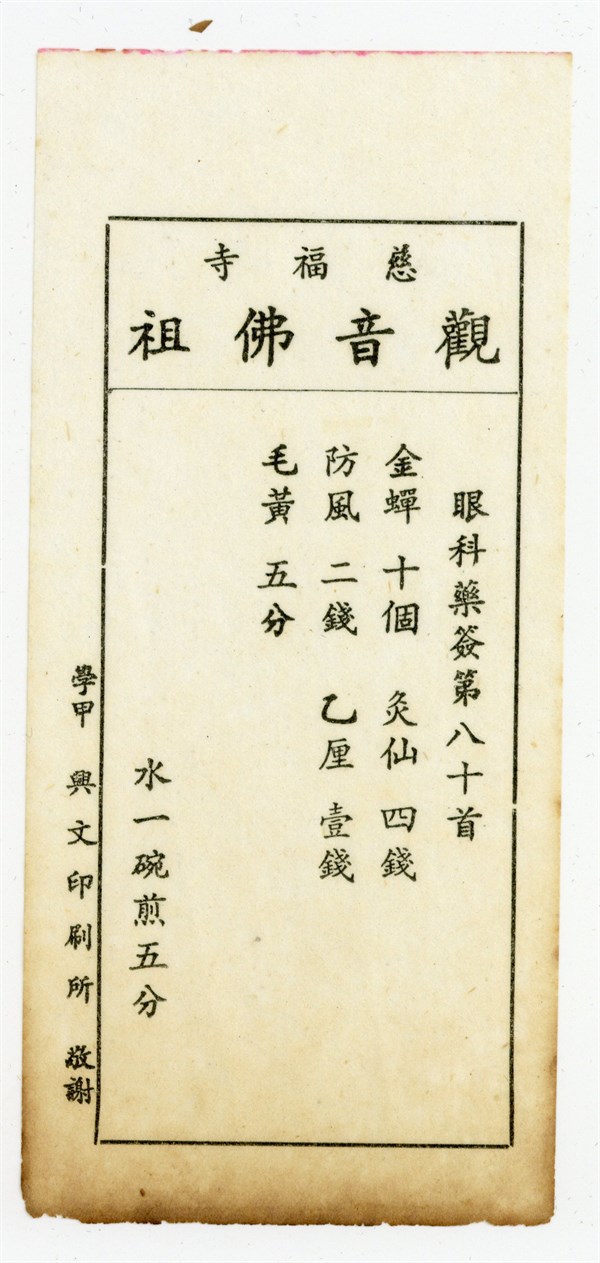 慈福寺
觀音佛祖
眼科藥簽第八十首
金蟬 十個 灸仙 四錢
防風 二錢 乙厘 壹錢
毛黃 五分
水一碗煎五分
學甲 興文印刷所 敬謝